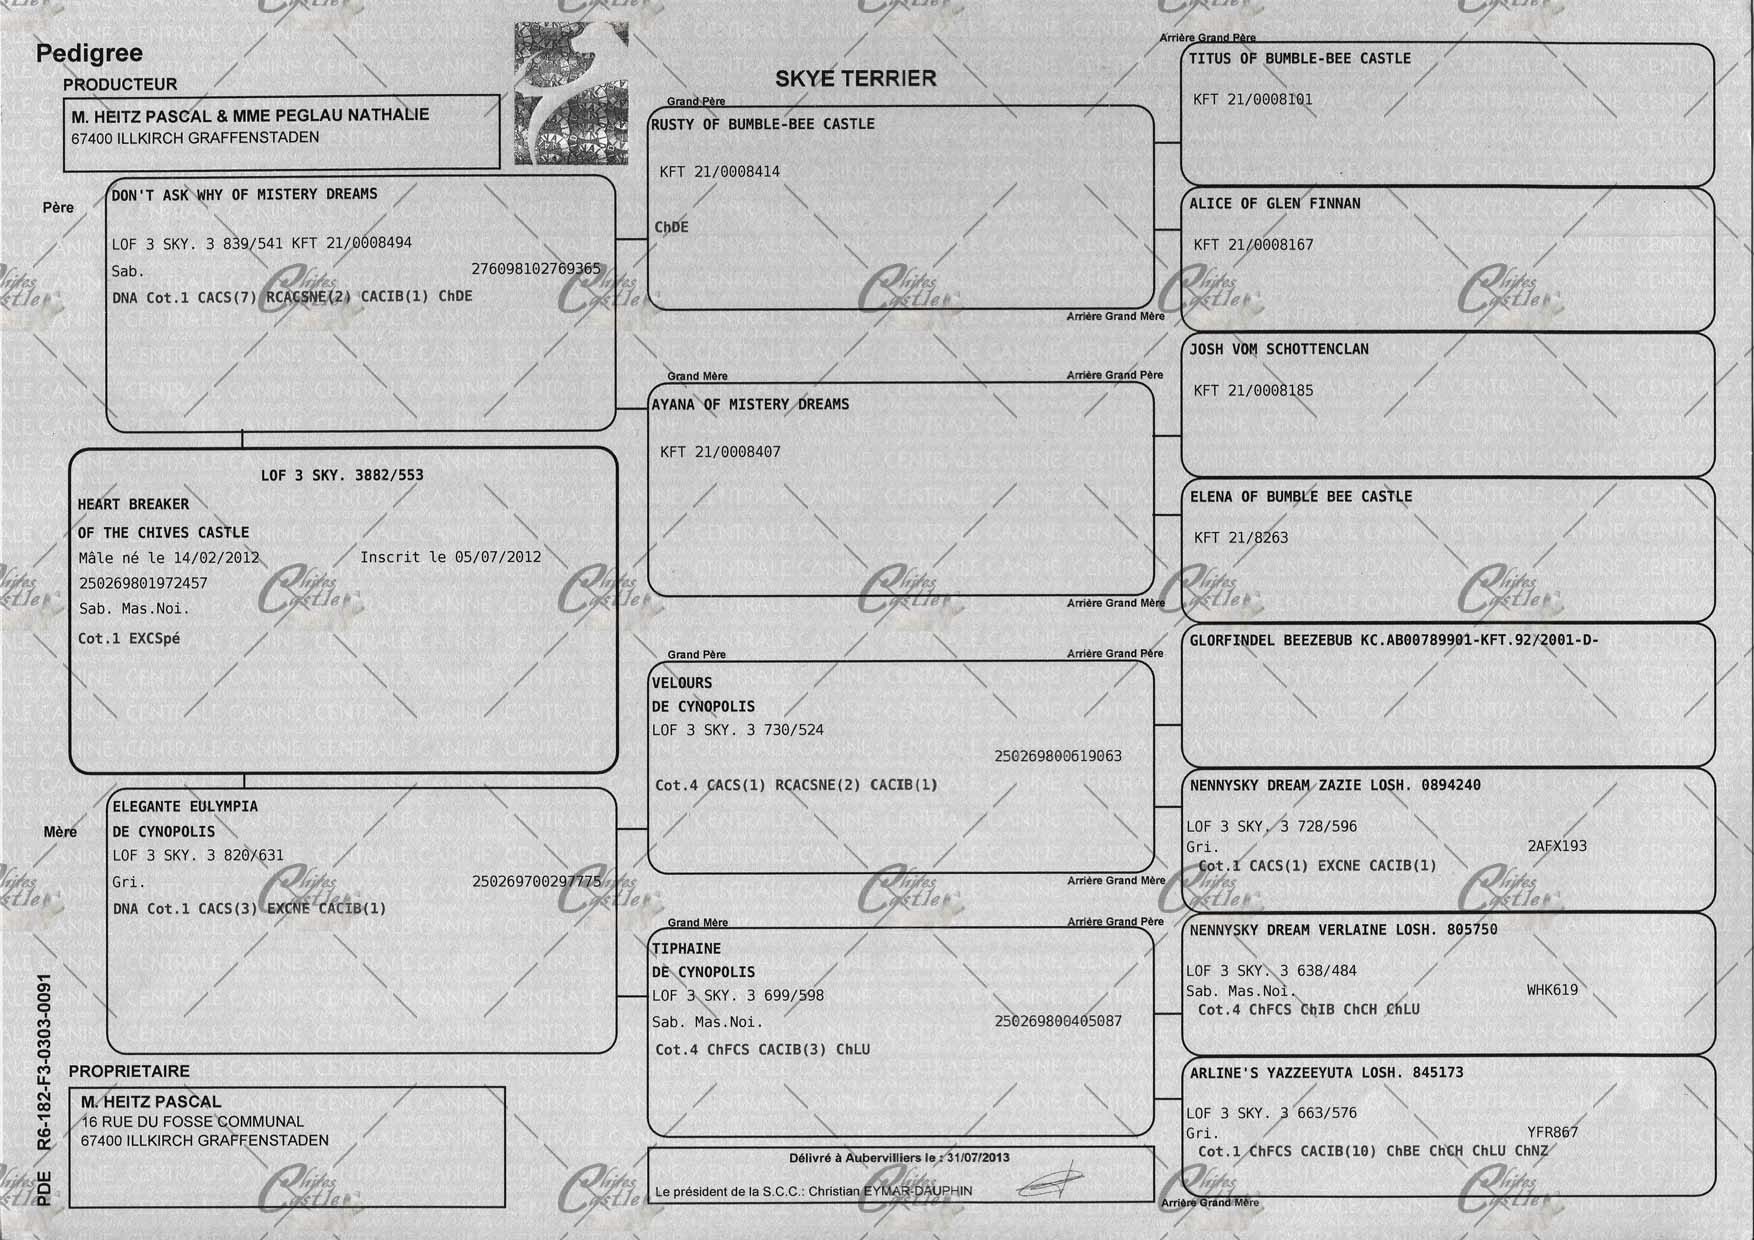 Pedigree
PRODUCTEUR
M. HEITZ PASCAL & MME PEGLAU NATHALIE
67400 ILLKIRCH GRAFFENSTADEN
SKYE TERRIER
Père
DON'T ASK WHY OF MISTERY DREAMS
LOF 3 SKY. 3 839/541 KFT 21/0008494
Sab. 276098102769365
DNA Cot.1 CACS(7) RCACSNE(2) CACIB(1) ChDE
LOF 3 SKY. 3882/553
HEART BREAKER
OF THE CHIVES CASTLE
Mâle né le 14/02/2012 Inscrit le 05/07/2012
250269801972457
Sab. Mas.Noi.
Cot.1 EXCSpé
Mère
ELEGANTE EULYMPIA
DE CYNOPOLIS
LOF 3 SKY. 3 820/631
Gri. 250269700297775
DNA Cot.1 CACS(3) EXCNE CACIB(1)
PROPRIETAIRE
M. HEITZ PASCAL
16 RUE DU FOSSE COMMUNAL
67400 ILLKIRCH GRAFFENSTADEN
PDE R6-182-F3-0303-0091
Grand Père
RUSTY OF BUMBLE-BEE CASTLE
KFT 21/0008414
ChDE
Grand Mère
AYANA OF MISTERY DREAMS
KFT 21/0008407
Grand Père
VELOURS
DE CYNOPOLIS
LOF 3 SKY. 3 730/524
250269800619063
Cot.4 CACS(1) RCACSNE(2) CACIB(1)
Grand Mère
TIPHAINE
DE CYNOPOLIS
LOF 3 SKY. 3 699/598
Sab. Mas.Noi. 250269800405087
Cot.4 ChFCS CACIB(3) ChLU
Délivré à Aubervilliers le : 31/07/2013
Le président de la S.C.C.: Christian EYMAR-DAUPHIN
Arrière Grand Père
TITUS OF BUMBLE-BEE CASTLE
KFT 21/0008101
ALICE OF GLEN FINNAN
KFT 21/0008167
Arrière Grand Mère
Arrière Grand Père
JOSH VOM SCHOTTENCLAN
KFT 21/0008185
ELENA OF BUMBLE BEE CASTLE
KFT 21/8263
Arrière Grand Mère
Arrière Grand Père
GLORFINDEL BEEZEBUB KC.AB00789901-KFT.92/2001-D-
NENNYSKY DREAM ZAZIE LOSH. 0894240
LOF 3 SKY. 3 728/596
Gri. 2AFX193
Cot.1 CACS(1) EXCNE CACIB(1)
Arrière Grand Mère
Arrière Grand Père
NENNYSKY DREAM VERLAINE LOSH. 805750
LOF 3 SKY. 3 638/484
Sab. Mas.Noi. WHK619
Cot.4 ChFCS ChIB ChCH ChLU
ARLINE'S YAZZEEYUTA LOSH. 845173
LOF 3 SKY. 3 663/576
Gri. YFR867
Cot.1 ChFCS CACIB(10) ChBE ChCH ChLU ChNZ
Arrière Grand Mère
Chives Castle